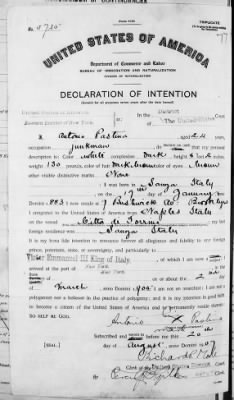 No. 5725
TRIPLICATE
UNITED STATES OF AMERICA
Department of Commerce and Labor
BUREAU OF IMMIGRATION AND NATURALIZATION
DIVISION OF NATURALIZATION
DECLARATION OF INTENTION
(Invalid for all purposes seven years after the date hereof)
United States of America
Eastern District of New York
In the District
The United States
I, Antonio aged 24 years,
occupation junkman, do declare on oath that my personal
description is: Color white, complexion Dark, height 5 feet 2 inches,
weight 130 pounds, color of hair Dark brown, color of eyes brown
other visible distinctive marks None
I was born in Italy
on the 17 day of January, anno
Domini 1883; I now reside at 7 Ave Brooklyn
I emigrated to the United States of America from Naples Italy
on the vessel Citta di; my last
foreign residence was Italy
It is my bona fide intention to renounce forever all allegiance and fidelity to any foreign
prince, potentate, state, or sovereignty, and particularly to
Victor Emmanuel III King of Italy, of which I am now a subject; I
arrived at the port of New York, in the
State of New York on or about the 2nd day
of March, anno Domini 1905; I am not an anarchist; I am not a
polygamist nor a believer in the practice of polygamy; and it is my intention in good faith
to become a citizen of the United States of America and to permanently reside therein:
SO HELP ME GOD.
Antonio
Subscribed and sworn to before me this 20
[SEAL] day of August, anno Domini 1907
Richard
Clerk of the